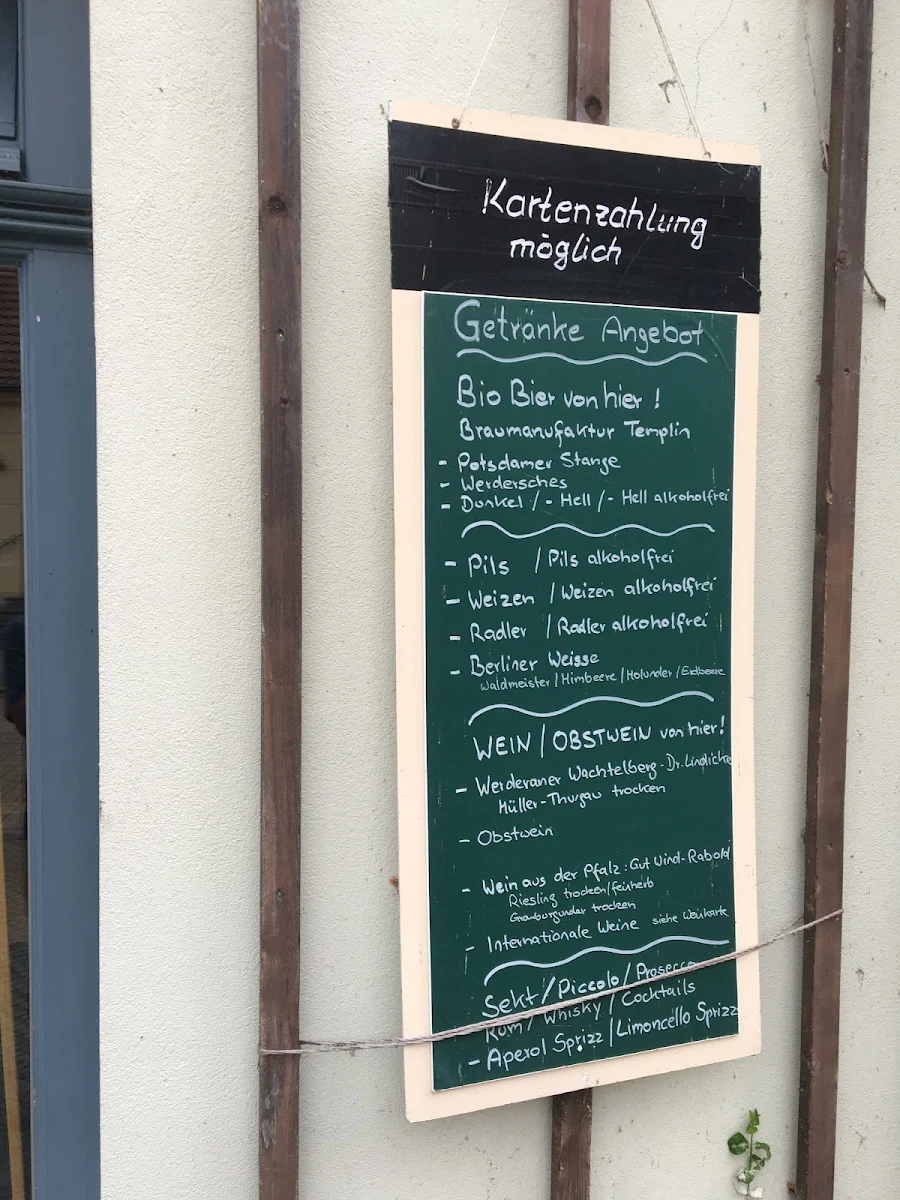 Kartenzahlung
möglich
Getränke Angebot
Bio Bier von hier !
Braumanufaktur Templin
- Potsdamer Stange
- Werdersches
- Dunkel / - Hell / - Hell alkoholfrei
- Pils / Pils alkoholfrei
- Weizen / Weizen alkoholfrei
- Radler / Radler alkoholfrei
- Berliner Weisse
Waldmeister / Himbeere / Holunder / Erdbeere
WEIN / OBSTWEIN von hier!
- Werderaner Wachtelberg - Dr. Lindicke
Müller-Thurgau trocken
- Obstwein
- Wein aus der Pfalz : Gut Wind-Rabold
Riesling trocken/feinherb
Grauburgunder trocken
- Internationale Weine siehe Weinkarte
Sekt / Piccolo / Prosecco
Rum / Whisky / Cocktails
- Aperol Sprizz / Limoncello Sprizz